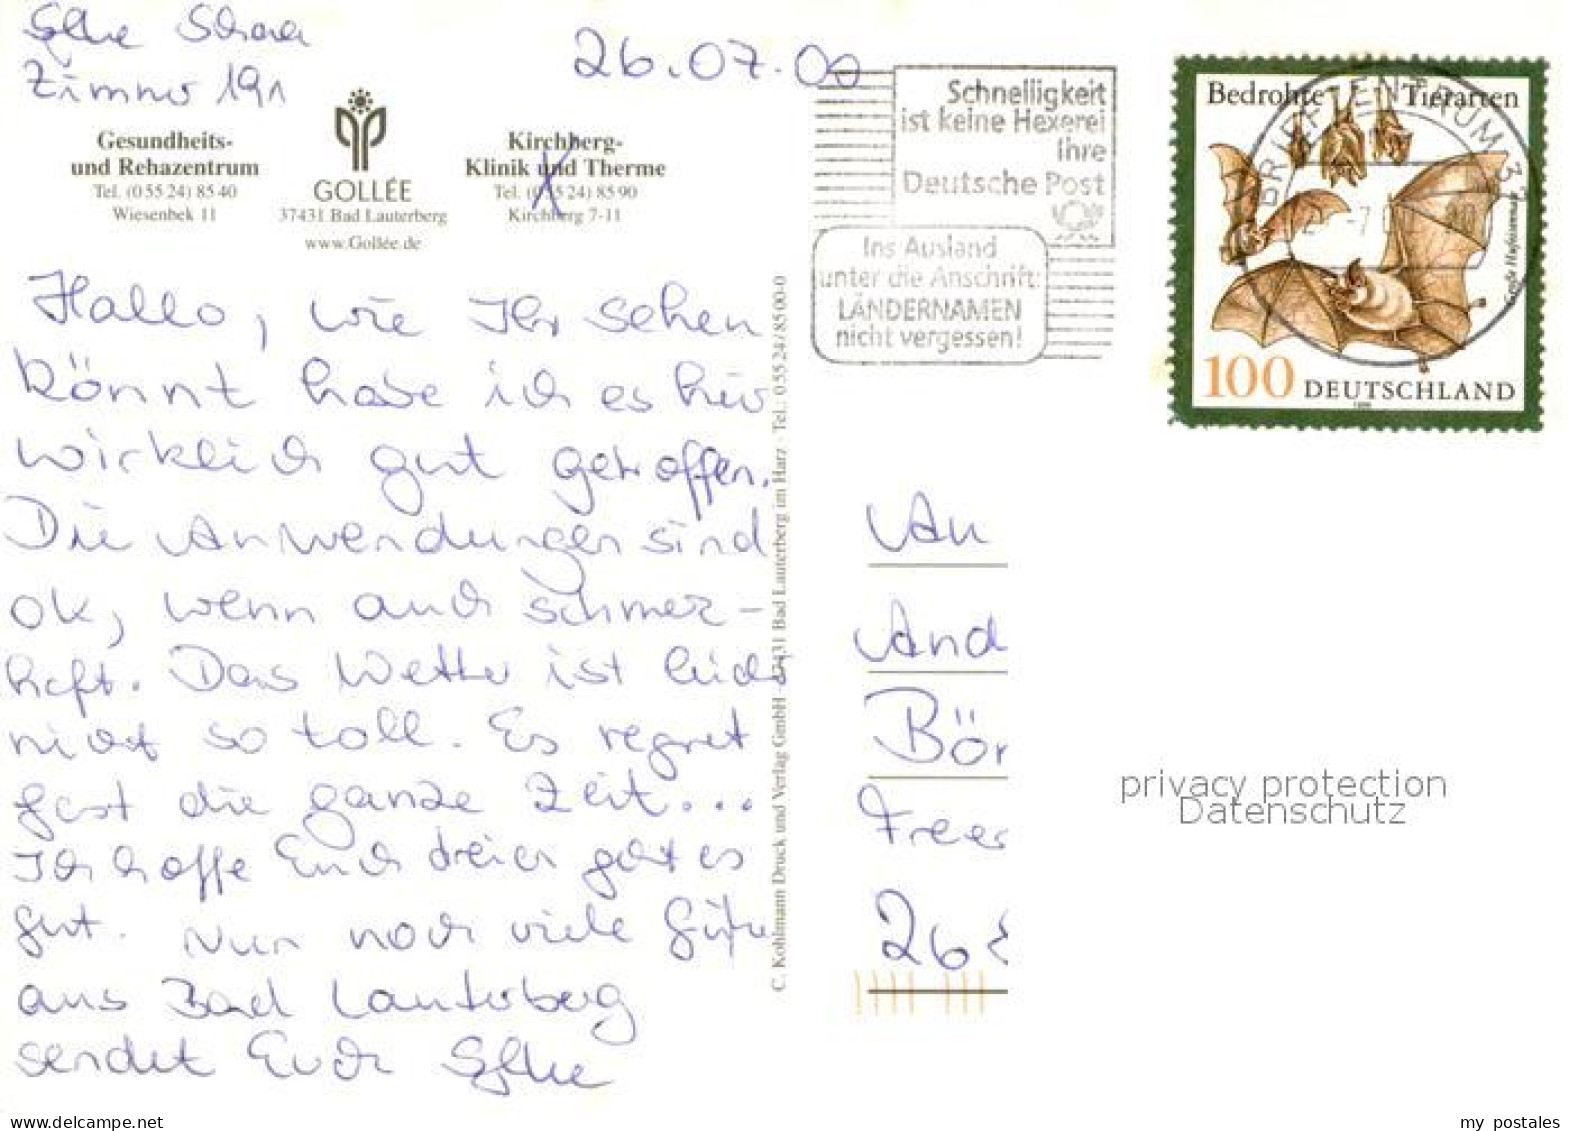 Zimmer 191
26.07.00
Gesundheits-
und Rehazentrum
Tel. (0 55 24) 85 40
Wiesenbek 11
GOLLÉE
37431 Bad Lauterberg
www.Gollée.de
Kirchberg-
Klinik und Therme
Tel. (0 55 24) 85 90
Kirchberg 7-11
Hallo, wie Ihr sehen
könnt habe ich es hier
wirklich gut getroffen.
Die Anwendungen sind
ok, wenn auch schmerz-
haft. Das Wetter ist leider
nicht so toll. Es regnet
fast die ganze Zeit...
Ich hoffe Euch dreien geht es
gut. Nur noch viele Grüße
aus Bad Lauterberg
sendet Euch
C. Kohlmann Druck und Verlag GmbH · 37431 Bad Lauterberg im Harz · Tel. 0 55 24 / 85 00-0
Schnelligkeit
ist keine Hexerei
Ihre
Deutsche Post
Ins Ausland
unter die Anschrift:
LÄNDERNAMEN
nicht vergessen!
Bedrohte Tierarten
BRIEFZENTRUM 37
Große Hufeisennase
100 DEUTSCHLAND
An
And
Bör
Freer
26
privacy protection
Datenschutz
www.delcampe.net
my postales